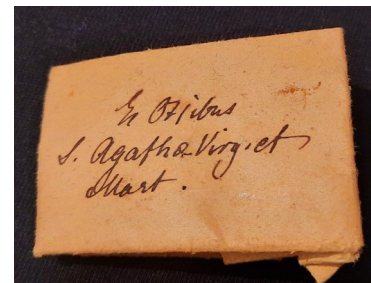 Ex Ossibus
S. Agathæ Virg. et
Mart.